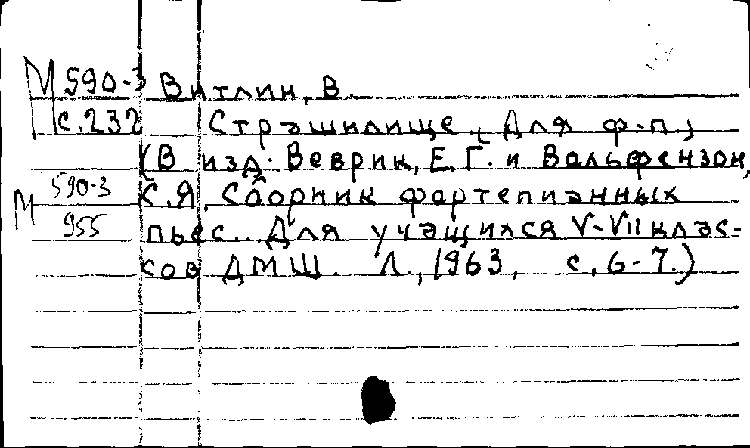 М 590-3 Витлин, В.
с.232 Страшилище. (Для ф.-п.)
(В изд: Веврик, Е.Г. и Вольфензон,
М 590-3 С.Я. Сборник фортепианных
955 пьес. Для учащихся V-VII клас-
сов ДМШ. Л., 1963, с. 6-7.)